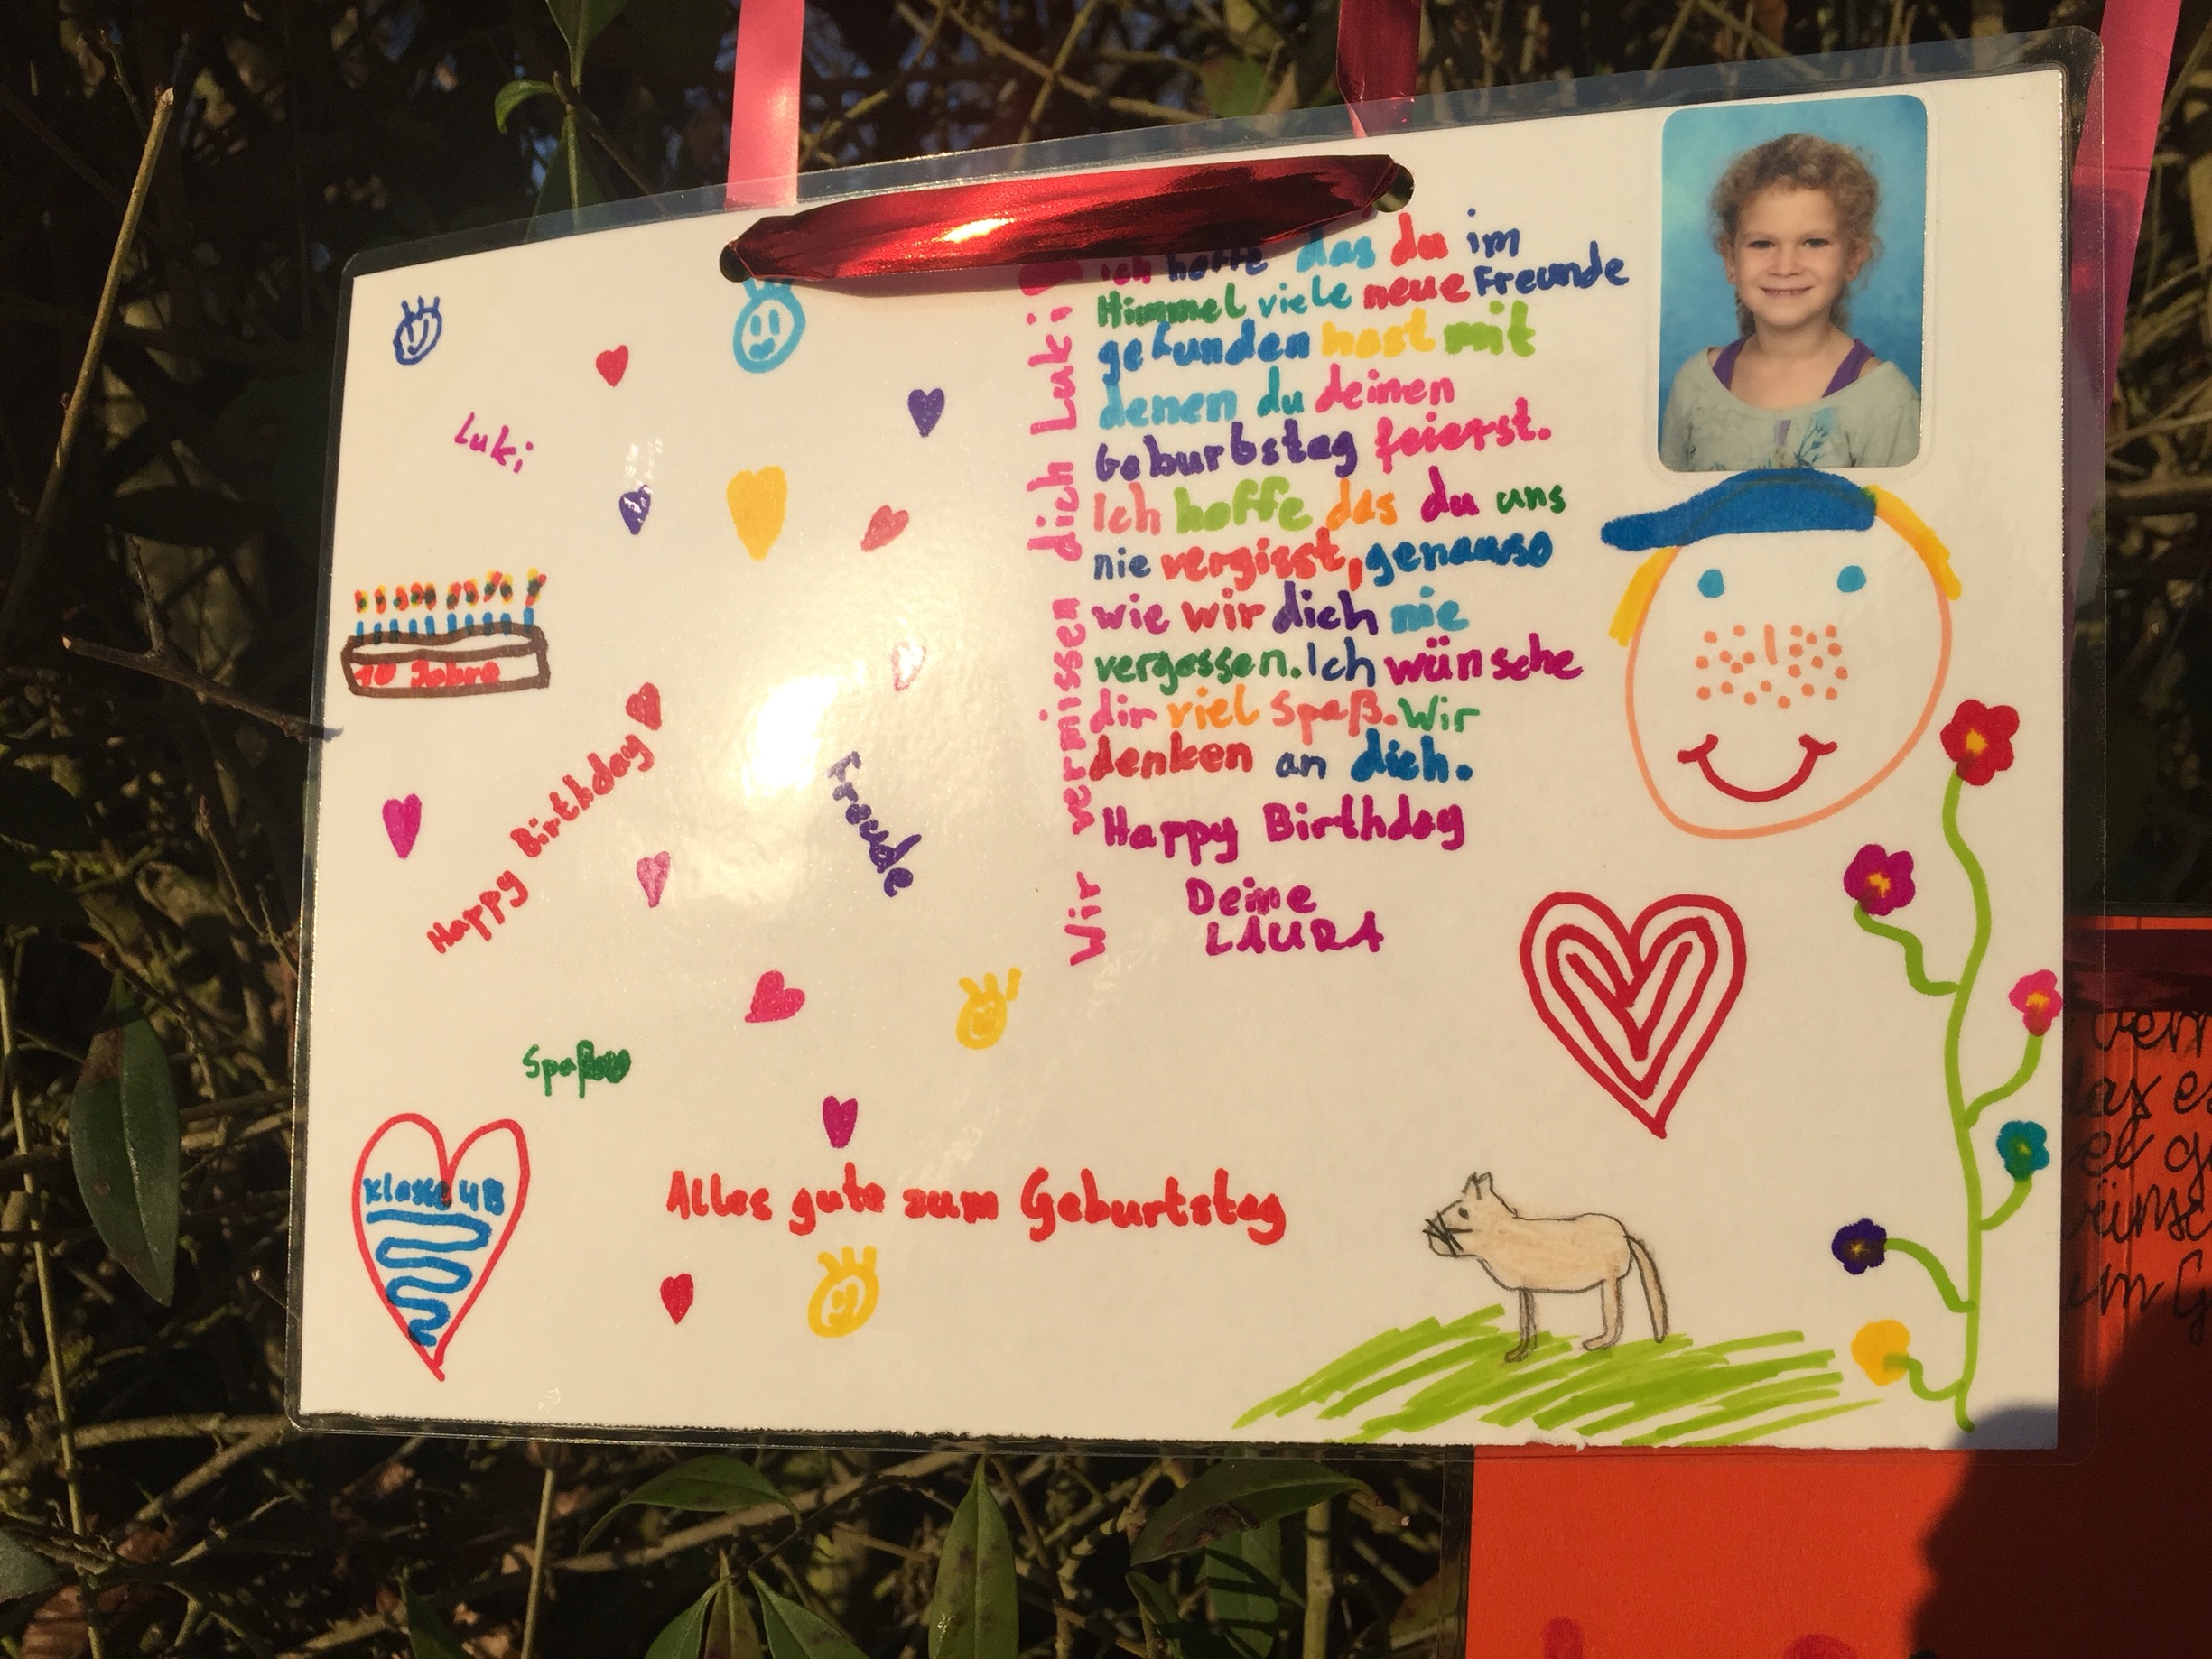 Luki
10 Jahre
Happy Birthday
Freude
Spaß
Klasse 4B
Alles gute zum Geburtstag
Wir vermissen dich Luki
ich hoffe das du im
Himmel viele neue Freunde
gefunden hast mit
denen du deinen
Geburbstag feierst.
Ich hoffe das du uns
nie vergisst, genauso
wie wir dich nie
vergossen. Ich wünsche
dir viel Spaß. Wir
denken an dich.
Happy Birthday
Deine
LAURA